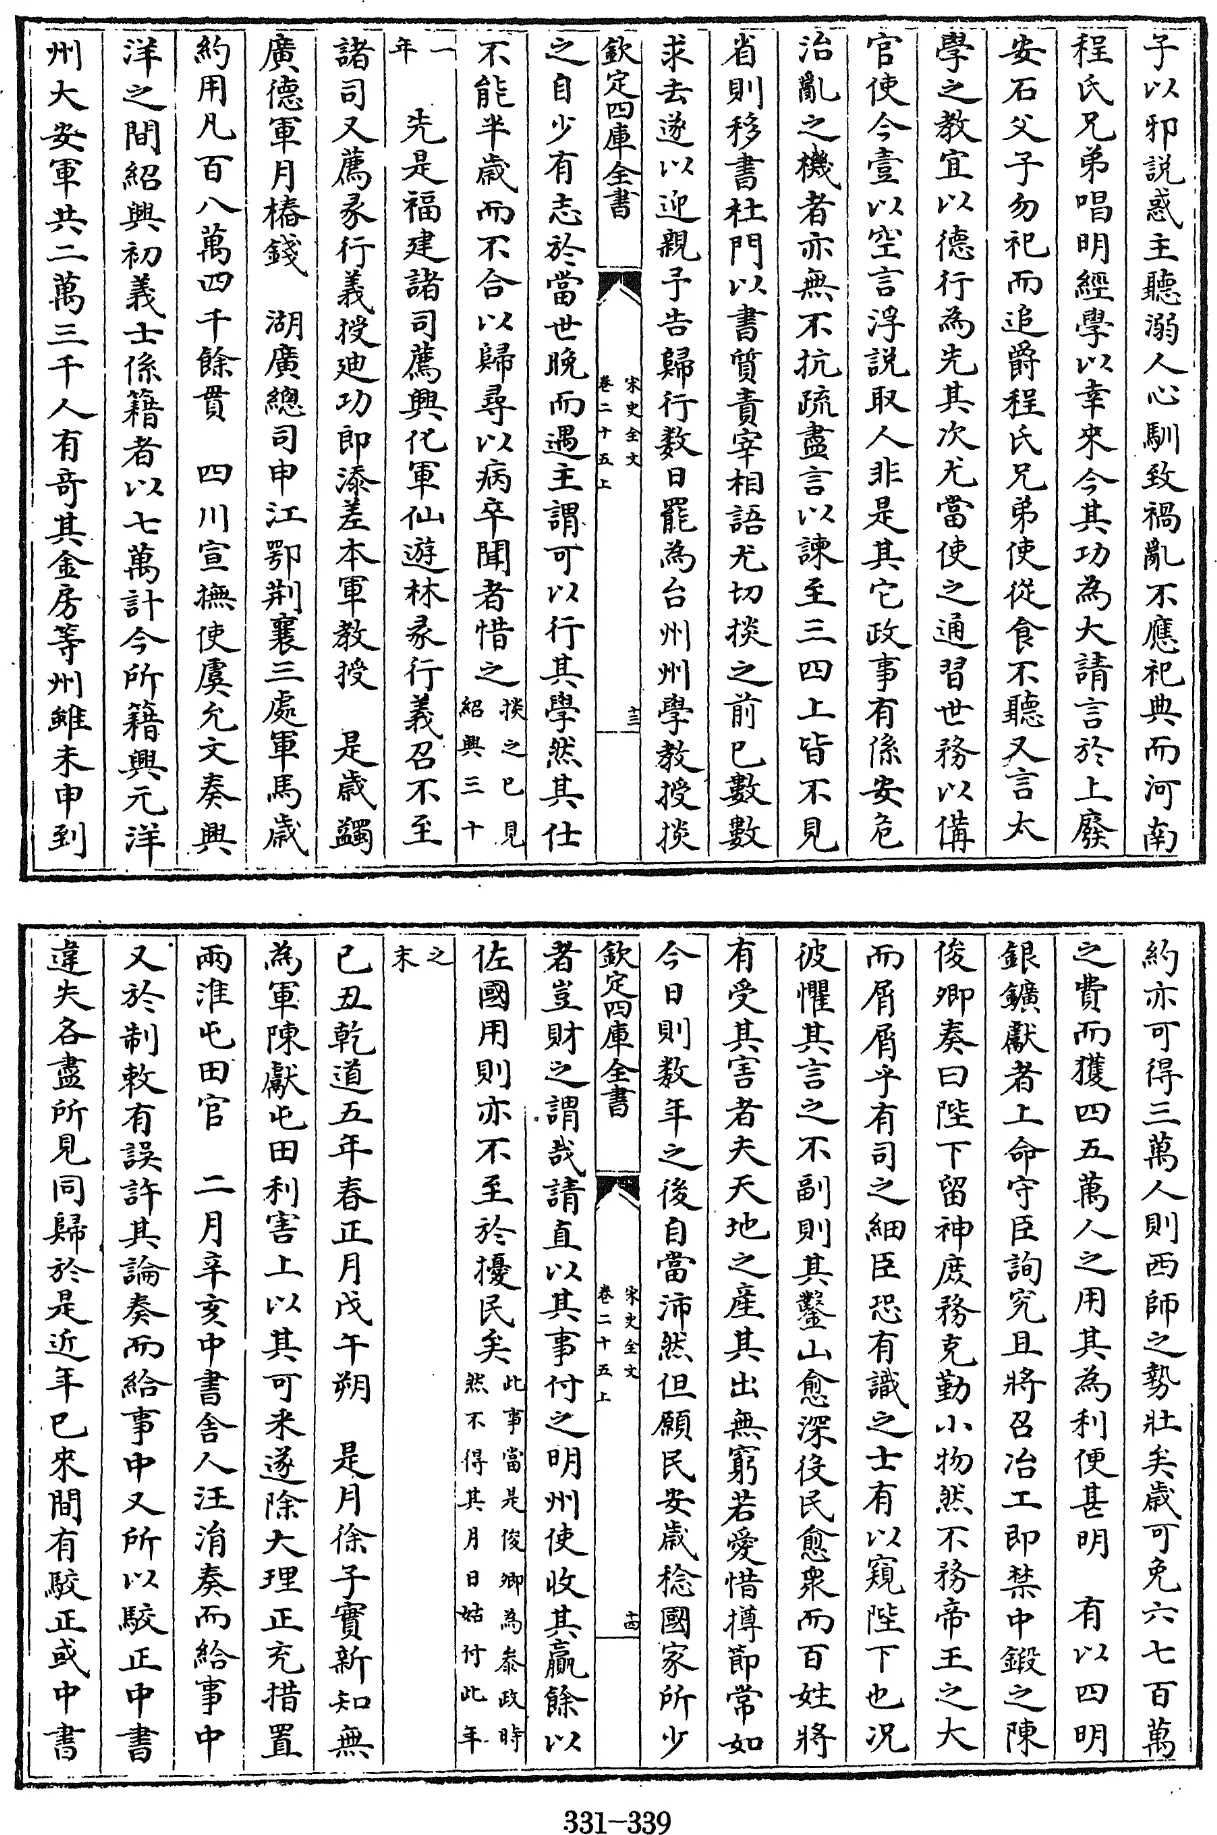 子以邪説惑主聽溺人心馴致禍亂不應祀典而河南
程氏兄弟唱明經學以幸來今其功為大請言於上廢
安石父子勿祀而追爵程氏兄弟使從食不聽又言太
學之教宜以德行為先其次尤當使之通習世務以備
官使今壹以空言浮説取人非是其它政事有係安危
治亂之機者亦無不抗疏盡言以諫至三四上皆不見
省則移書杜門以書質責宰相語尤切掞之前已數數
求去遂以迎親予告歸行数日罷為台州州學教授掞
欽定四庫全書
宋史全文
卷二十五上
十三
之自少有志於當世晩而遇主謂可以行其學然其仕
不能半歲而不合以歸尋以病卒聞者惜之掞之已見
紹興三十
一年 先是福建諸司薦興化軍仙遊林彖行義召不至
諸司又薦彖行義授廸功郎添差本軍教授 是歲蠲
廣德軍月樁錢 湖廣總司申江鄂荆襄三處軍馬歳
約用凡百八萬四千餘貫 四川宣撫使虞允文奏興
洋之間紹興初義士係籍者以七萬計今所籍興元洋
州大安軍共二萬三千人有奇其金房等州雖未申到
約亦可得三萬人則西師之勢壯矣歲可免六七百萬
之費而獲四五萬人之用其為利便甚明 有以四明
銀鑛獻者上命守臣詢究且將召冶工即禁中鍛之陳
俊卿奏曰陛下留神庶務克勤小物然不務帝王之大
而屑屑乎有司之細臣恐有識之士有以窺陛下也况
彼懼其言之不副則其鑿山愈深役民愈衆而百姓將
有受其害者夫天地之産其出無窮若愛惜撙節常如
今日則数年之後自當沛然但願民安歲稔國家所少
欽定四庫全書
宋史全文
卷二十五上
十四
者豈財之謂哉請直以其事付之明州使收其贏餘以
佐國用則亦不至於擾民矣此事當是俊卿為叅政時
然不得其月日姑付此年
之末
己丑乾道五年春正月戊午朔 是月徐子實新知無
為軍陳獻屯田利害上以其可采遂除大理正充措置
兩淮屯田官 二月辛亥中書舎人汪涓奏而給事中
又於制敕有誤許其論奏而給事中又所以駮正中書
違失各盡所見同歸於是近年已來間有駮正或中書
331-339